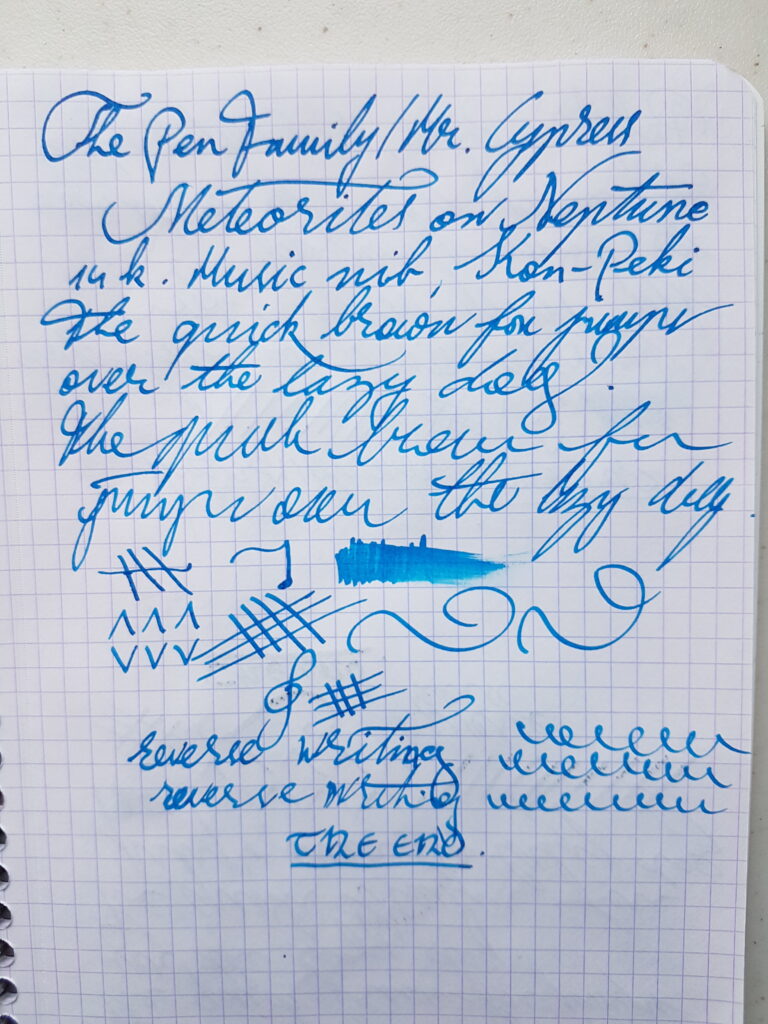 The Pen Family/Mr. Cypress
Meteorites on Neptune
14k. Music nib, Kon-Peki
The quick brown fox jumps
over the lazy dog.
The quick brown fox
jumps over the lazy dog.
reverse writing
reverse writing
THE END.